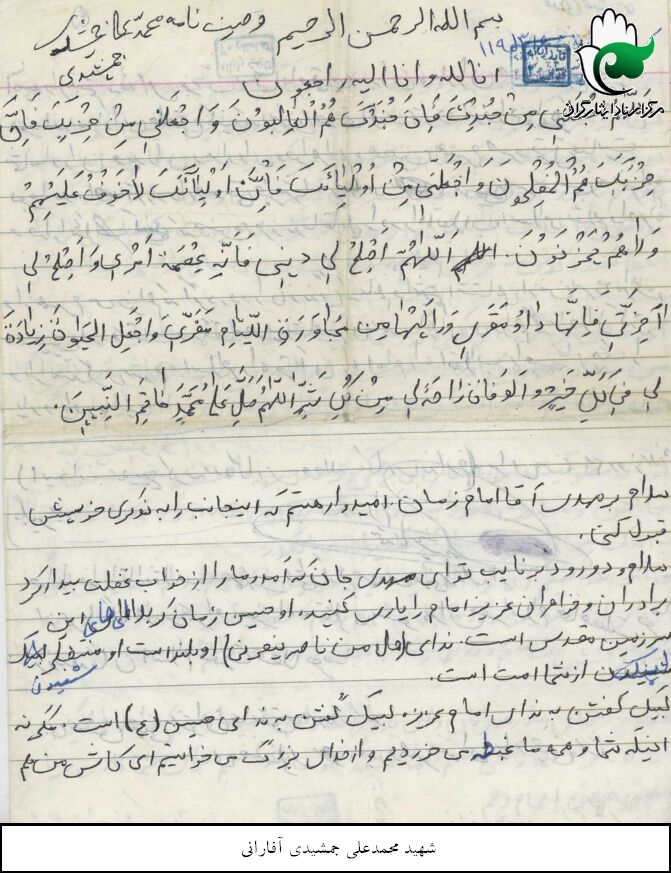 بسم الله الرحمن الرحیم وصیت نامه محمد علی جمشیدی
انا لله و انا الیه راجعون
۱۱۹۵۳
مرکز اسناد ایثارگران
مِنْ جُنْدِكَ فَاِنَّ جُنْدَكَ هُمُ الْغالِبُونَ وَ اجْعَلْنی مِنْ حِزْبِكَ فَاِنَّ
حِزْبَكَ هُمُ الْمُفْلِحُونَ وَ اجْعَلْنی مِنْ اَوْلیائِكَ فَاِنَّ اَوْلیائَكَ لاخَوْفٌ عَلَیْهِمْ
وَلاهُمْ یَحْزَنُونَ. اَللّهُمَّ اَصْلِحْ لی دینی فَاِنَّهُ عِصْمَةُ اَمْری وَ اَصْلِحْ لی
آخِرَتی فَاِنَّها دارُ مَقَرّی وَ اِلَیْها مِن مُجاوَرَةِ اللِّئامِ مَفَرّی وَ اجْعَلِ الْحَیوةَ زِیادَةً
لی فی كُلِّ خَیْرٍ و الوَفاةَ راحَةً لی مِنْ كُلِّ شَرٍّ اَللّهُمَّ صَلِّ عَلی مُحَمَّدٍ خاتَمِ النَّبِیّینَ.
سلام بر مهدی آقا امام زمان. امیدوار هستم که اینجانب را به نوکری خویش
قبول کنی.
سلام و درود بر نایب تو ای مهدی جان که آمد و ما را از خواب غفلت بیدار کرد
برادران و خواهران عزیز امام را یاری کنید. او حسین زمان کربلاهای این
سرزمین مقدس است. ندای (هل من ناصر ینصرنی) او بلند است او منتظر لبیک
شنیدن از شما امت است.
لبیک گفتن به ندای امام عزیز. لبیک گفتن به ندای حسین (ع) است. مگر نه
اینکه شما و همه ما غبطه می خوردیم و از خدای بزرگ می خواستیم ای کاش من هم
شهید محمدعلی جمشیدی آفارانی